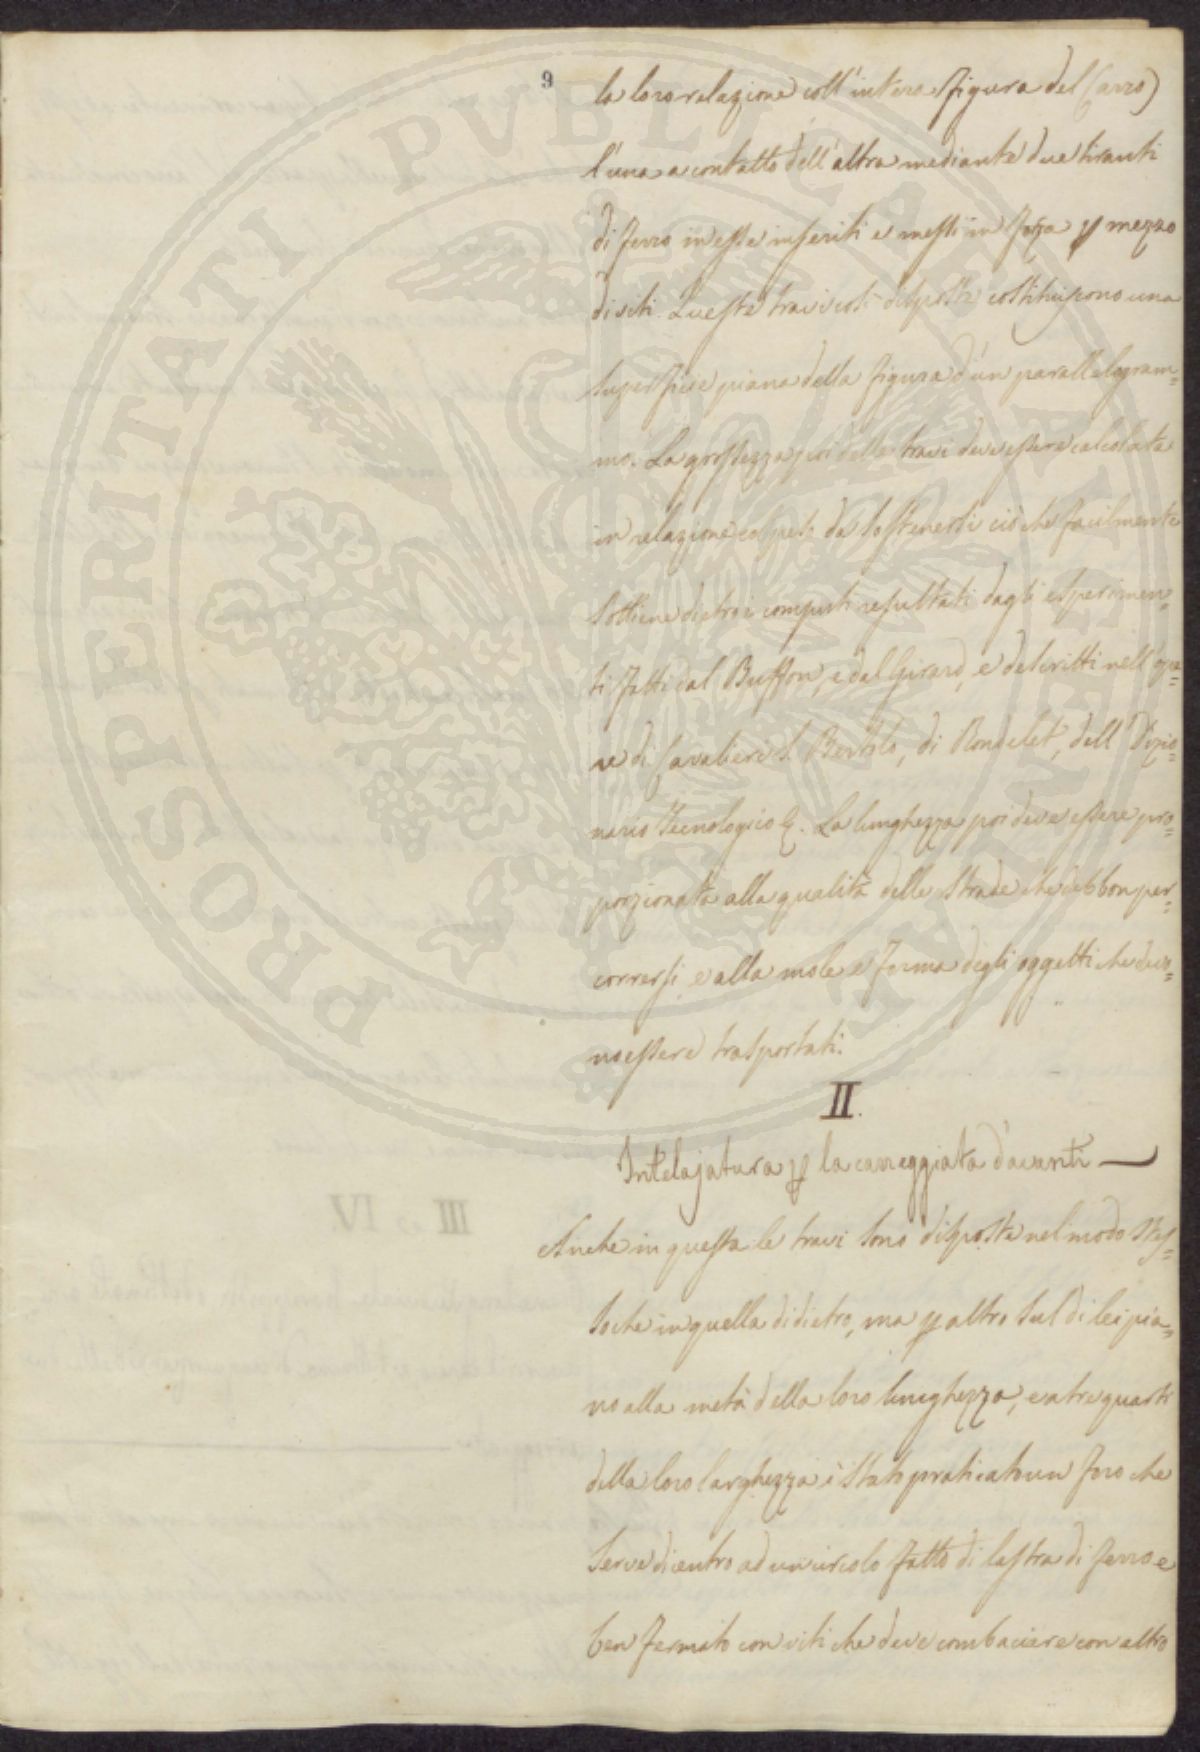 9
la loro relazione coll'intera figura del Carro)
l'una a contatto dell'altra mediante due tiranti
di ferro in esse inseriti e messi in forza p mezzo
di viti. Queste travi così disposte costituiscono una
superficie piana della figura d'un parallelogram=
mo. La grossezza poi delle travi deve essere calcolata
in relazione col peso da sostenersi ciò che facilmente
s'ottiene dietro i computi resultati dagli esperimen=
ti fatti dal Buffon, e dal Girard, e descritti nell'ope=
re di Cavalieri S. Bertolo, di Rondelet, dell Dizio=
nario Tecnologico &. La lunghezza poi deve essere pro=
porzionata alla qualità delle strade che debbon per=
corrersi, e alla mole e forma degli oggetti che devo=
no essere trasportati.
II.
Intelajatura p la carreggiata d'avanti —
Anche in questa le travi sono disposte nel modo stes=
so che in quella di dietro, ma p altro sul di lei pia=
no alla metà della loro lunghezza, e a tre quarti
della loro larghezza è stato praticato un foro che
serve di centro ad un circolo fatto di lastra di ferro e
ben fermato con viti che deve combaciare con altro
III e IV
PROSPERITATI PUBLICAE